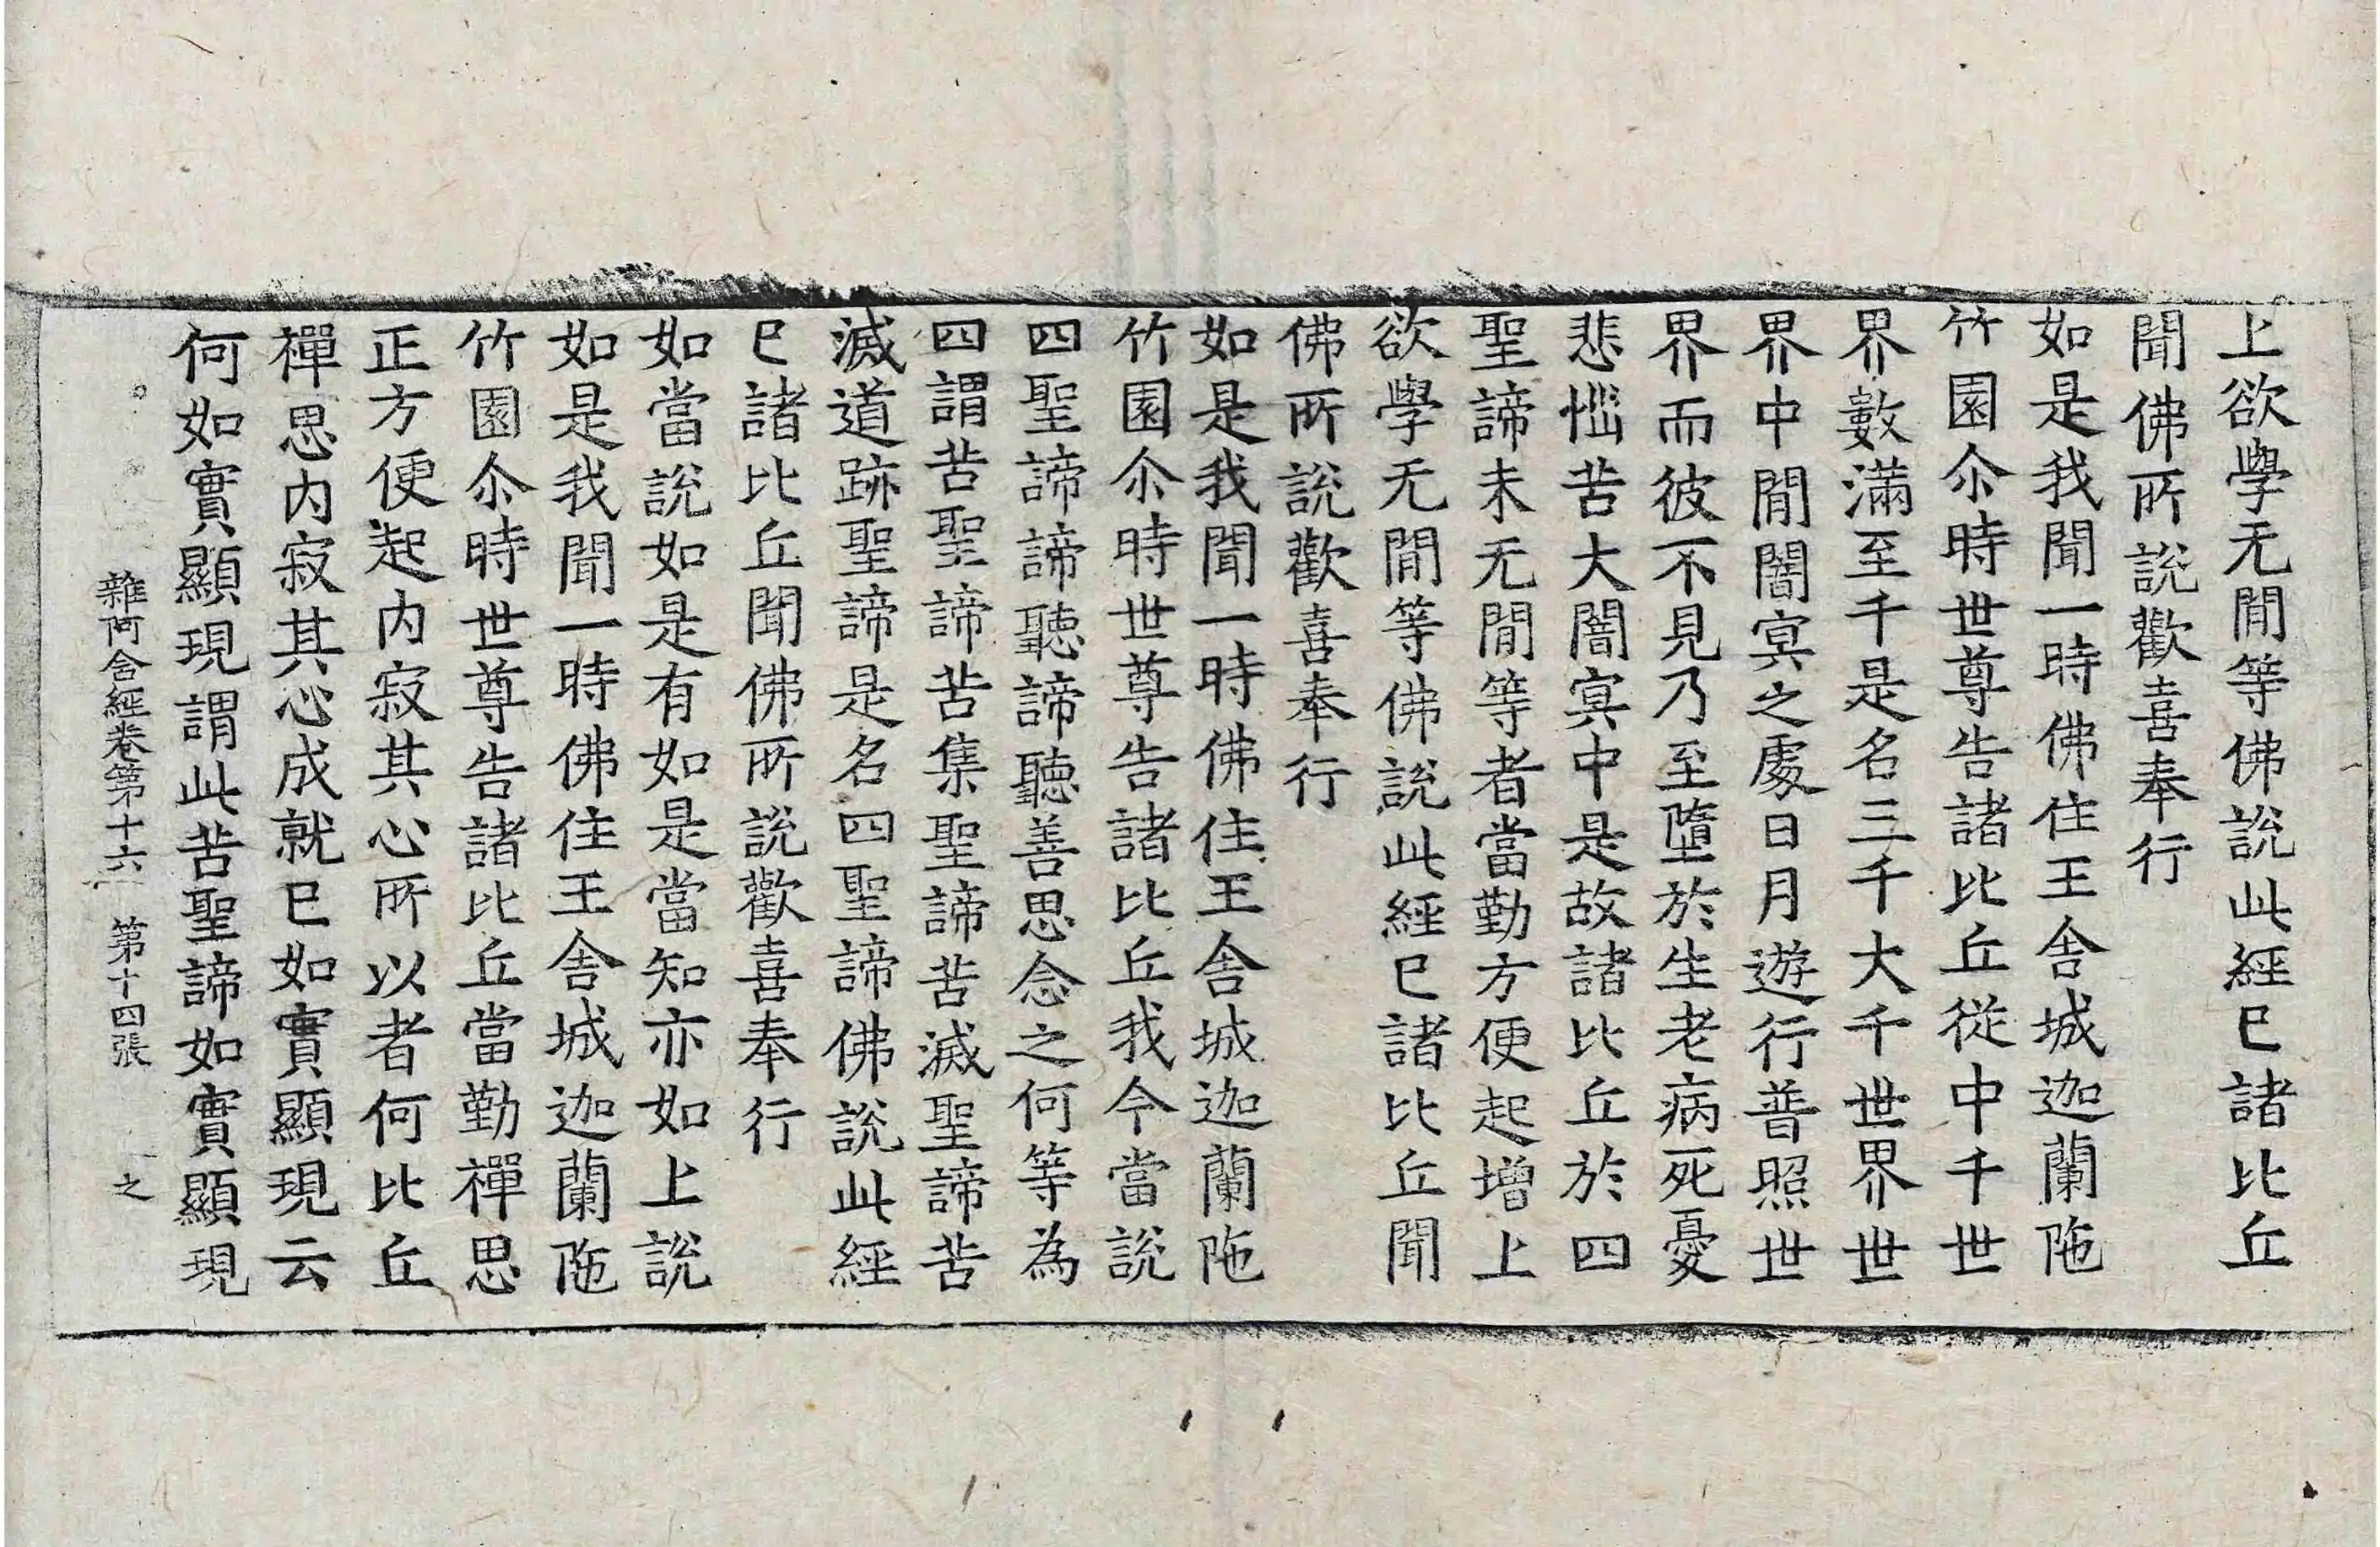 上欲學无閒等佛說此經已諸比丘
聞佛所說歡喜奉行
如是我聞一時佛住王舍城迦蘭陁
竹園尒時世尊告諸比丘從中千世
界數滿至千是名三千大千世界世
界中閒闇冥之處日月遊行普照世
界而彼不見乃至墮於生老病死憂
悲惱苦大闇冥中是故諸比丘於四
聖諦未无閒等者當勤方便起增上
欲學无閒等佛說此經已諸比丘聞
佛所說歡喜奉行
如是我聞一時佛住王舍城迦蘭陁
竹園尒時世尊告諸比丘我今當說
四聖諦諦聽諦聽善思念之何等為
四謂苦聖諦苦集聖諦苦滅聖諦苦
滅道跡聖諦是名四聖諦佛說此經
已諸比丘聞佛所說歡喜奉行
如當說如是有如是當知亦如上說
如是我聞一時佛住王舍城迦蘭陁
竹園尒時世尊告諸比丘當勤禪思
正方便起内寂其心所以者何比丘
禪思内寂其心成就已如實顯現云
何如實顯現謂此苦聖諦如實顯現
雜阿含經卷第十六 第十四張 之